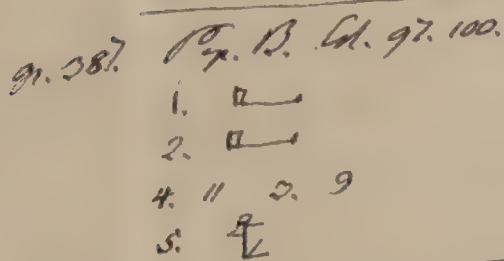 gr. 387. Pap. B. Col. 97. 100.
1.
2.
4. 11 9
5.